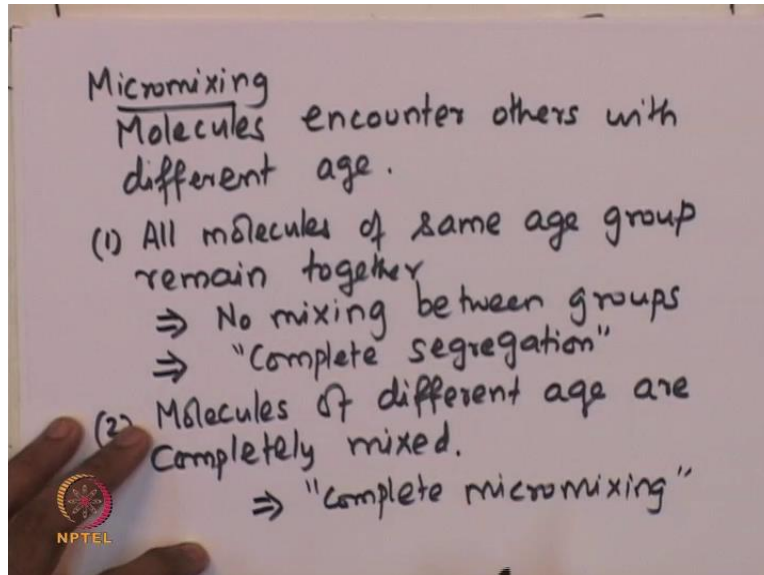 Micromixing
Molecules encounter others with
different age.
(1) All molecules of same age group
remain together
⇒ No mixing between groups
⇒ "Complete segregation"
(2) Molecules of different age are
completely mixed.
⇒ "complete micromixing"
NPTEL